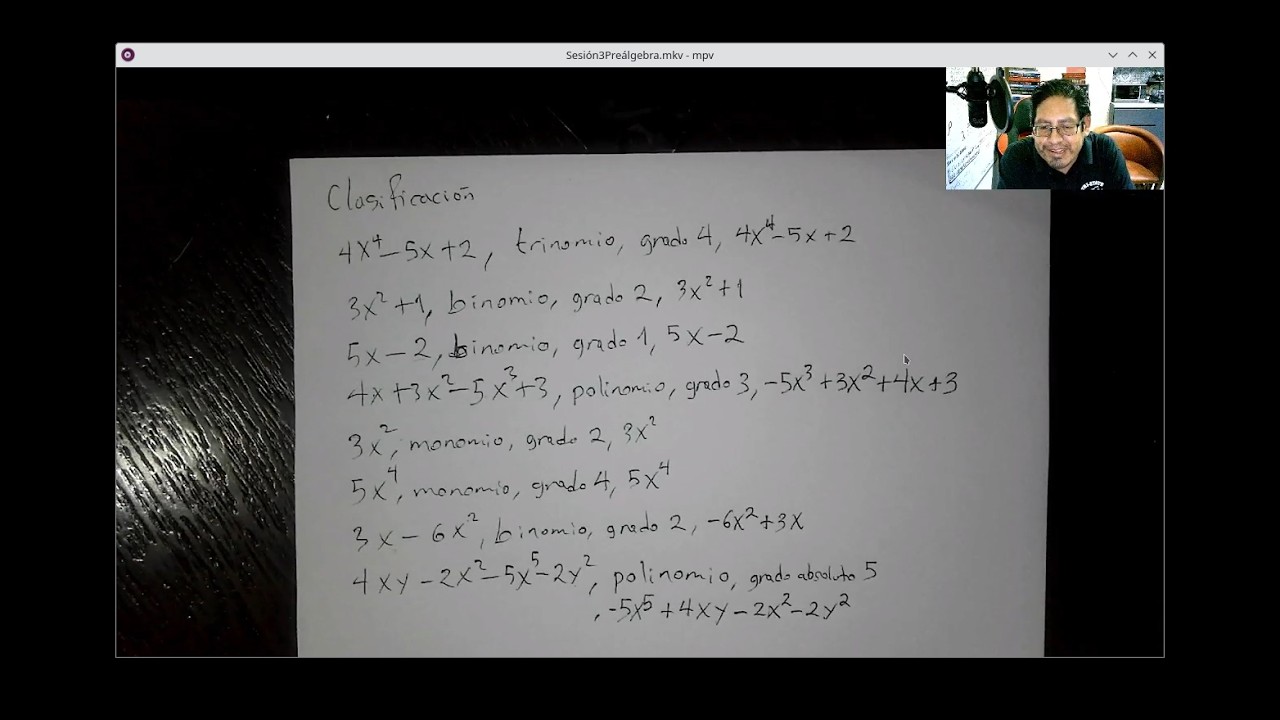 Sesión3Preálgebra.mkv - mpv
Clasificación
4x⁴-5x+2, trinomio, grado 4, 4x⁴-5x+2
3x²+1, binomio, grado 2, 3x²+1
5x-2, binomio, grado 1, 5x-2
4x+3x²-5x³+3, polinomio, grado 3, -5x³+3x²+4x+3
3x², monomio, grado 2, 3x²
5x⁴, monomio, grado 4, 5x⁴
3x-6x², binomio, grado 2, -6x²+3x
4xy-2x²-5x⁵-2y², polinomio, grado absoluto 5
, -5x⁵+4xy-2x²-2y²